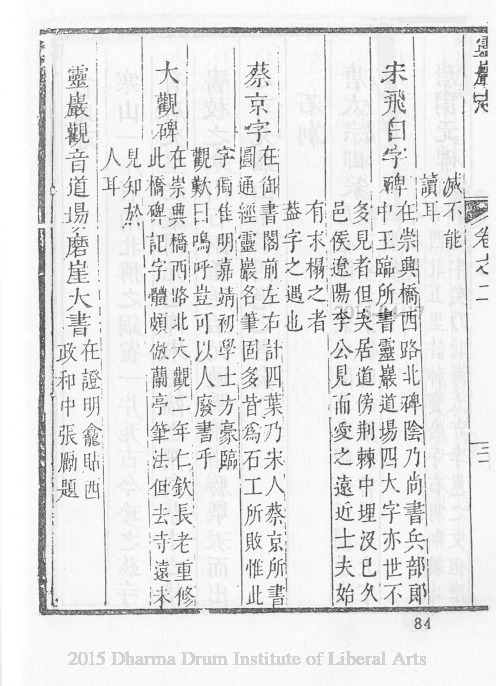 靈巖志
卷之二
三
減不能
讀耳
宋飛白字碑
在崇興橋西路北碑陰乃尚書兵部郎
中王臨所書靈巖道場四大字亦世不
多見者但矢居道傍荆棘中埋沒已久
邑侯遼陽李公見而愛之遠近士夫始
有求搨之者
葢字之遇也
蔡京字
在御書閣前左右計四葉乃宋人蔡京所書
圓通經靈巖名筆固多皆爲石工所敗惟此
字獨佳明嘉靖初學士方豪臨
觀歎曰嗚呼豈可以人廢書乎
大觀碑
在崇興橋西路北大觀二年仁欽長老重修
此橋碑記字體頗倣蘭亭筆法但去寺遠未
見知於
人耳
靈巖觀音道場磨崖大書
在證明龕貼西
政和中張勵題
84
2015 Dharma Drum Institute of Liberal Arts